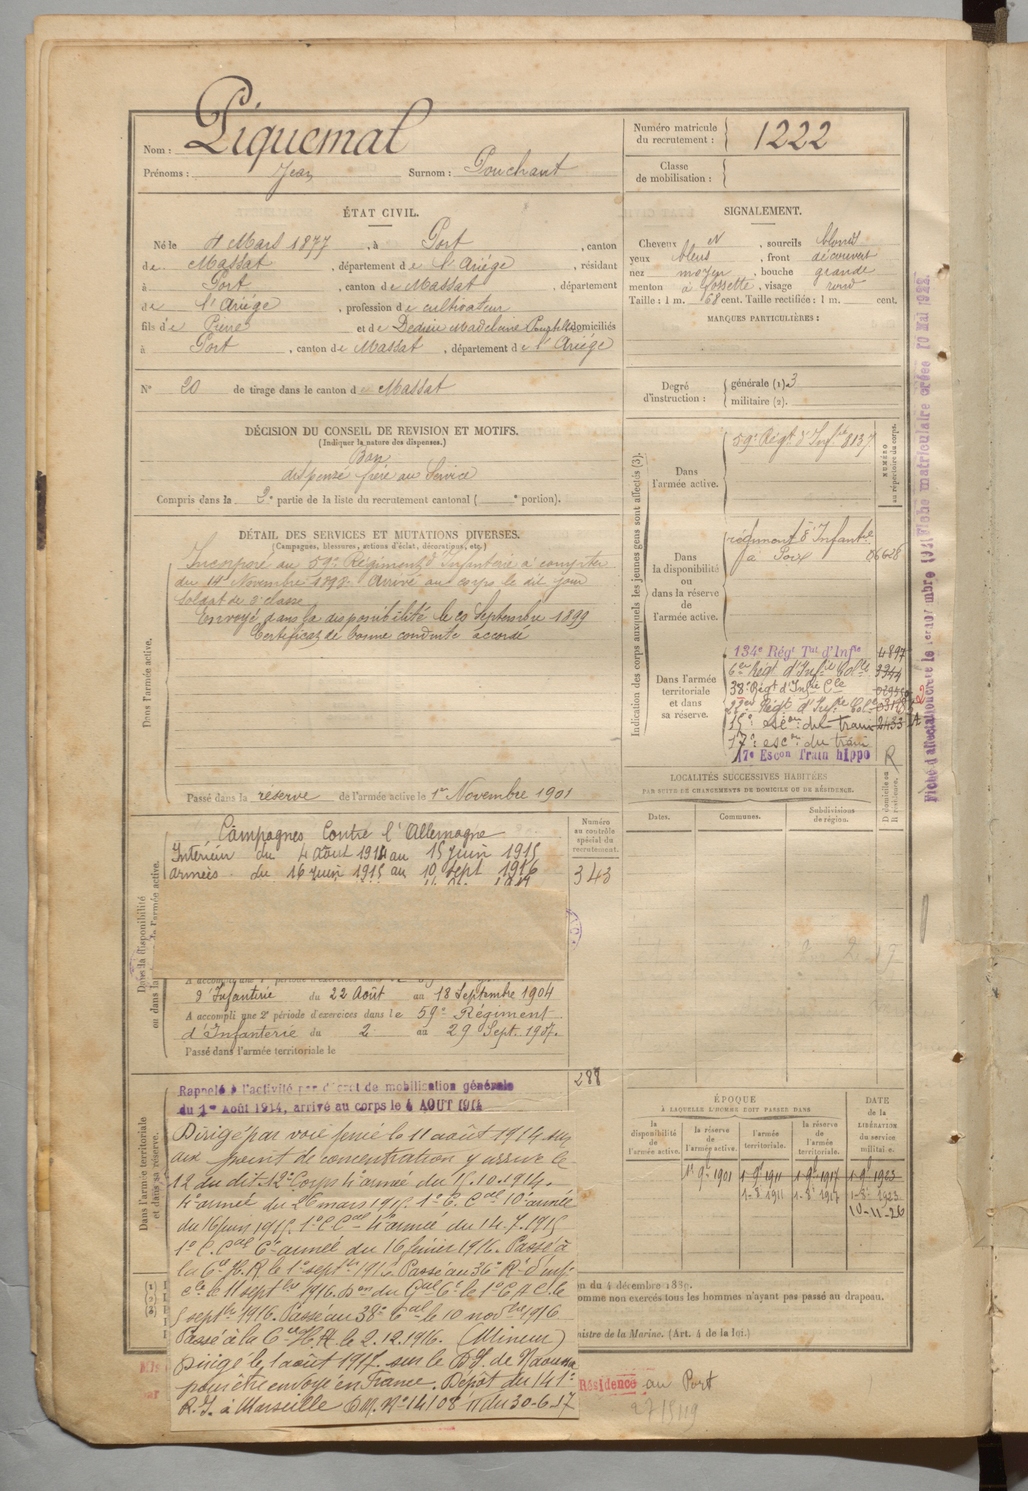 Nom : Piquemal
Prénoms : Jean Surnom : Pouchant
Numéro matricule du recrutement : 1222
Classe de mobilisation :
ÉTAT CIVIL.
Né le 4 Mars 1877, à Port, canton
de Massat, département de l'Ariège, résidant
à Port, canton de Massat, département
de l'Ariège, profession de cultivateur
fils de Pierre et de Madeleine domiciliés
à Port, canton de Massat, département de l'Ariège
N° 20 de tirage dans le canton de Massat
SIGNALEMENT.
Cheveux et, sourcils blonds
yeux bleus, front découvert
nez moyen, bouche grande
menton à fossette, visage rond
Taille : 1 m. 68 cent. Taille rectifiée : 1 m. cent.
MARQUES PARTICULIÈRES :
Degré d'instruction : générale (1). 3
militaire (2).
DÉCISION DU CONSEIL DE REVISION ET MOTIFS.
(Indiquer la nature des dispenses.)
Bon
dispensé frère au Service
Compris dans la 2e partie de la liste du recrutement cantonal ( e portion).
DÉTAIL DES SERVICES ET MUTATIONS DIVERSES.
(Campagnes, blessures, actions d'éclat, décorations, etc.)
Dans l'armée active.
Incorporé au 59e Régiment d'Infanterie à compter
du 14 Novembre 1898. Arrivé au corps le dit jour
soldat de 2e classe
Envoyé dans la disponibilité le 20 Septembre 1899
Certificat de bonne conduite accordé
Passé dans la réserve de l'armée active le 1er Novembre 1901
Indication des corps auxquels les jeunes gens sont affectés (3).
NUMÉRO au répertoire du corps.
Dans l'armée active.
59e Régt d'Infie 8137
Dans la disponibilité ou dans la réserve de l'armée active.
régiment d'Infantie
à Foix 06628
Dans l'armée territoriale et dans sa réserve.
134e Régt Tal d'Infie 4897
6me Régt d'Infie Colle 3344
38e Régt d'Infie Cle
23me Régt d'Infie Cole
15e escon du train 2433
17e escon du train
17e Escon Train hippo R
Fiche matriculaire créée 10 Mai 1922.
LOCALITÉS SUCCESSIVES HABITÉES
PAR SUITE DE CHANGEMENTS DE DOMICILE OU DE RÉSIDENCE.
Dates. Communes. Subdivisions de région.
Dans la disponibilité ou dans la réserve de l'armée active.
Campagnes Contre l'Allemagne
Intérieur du 4 Août 1914 au 15 Juin 1915
armées du 16 Juin 1915 au 10 sept 1916
Numéro au contrôle spécial du recrutement.
343
d'Infanterie du 22 Août au 18 Septembre 1904
A accompli une 2e période d'exercices dans le 59e Régiment
d'Infanterie du 2 au 29 Sept. 1907.
Passé dans l'armée territoriale le
Dans l'armée territoriale et dans sa réserve.
Rappelé à l'activité par décret de mobilisation générale
du 1er Août 1914, arrivé au corps le 4 AOUT 1914
Dirigé par voie ferrée le 11 août 1914 sur
aux point de concentration y arrive le
12 du dit. 12e Corps 4e armée du 15.10.1914.
4e armée du 26 mars 1915. 1er C. Cal 10e armée
du 16 juin 1915. 1er C. Cal 4e armée du 14.7.1915
1er C. Cal 6e armée du 16 février 1916. Passé à
la Cie H.R. le 1er septbre 1916. Passé au 36e Rt d'inf.
cle le 11 septbre 1916.
5 septbre 1916. Passé au 38e Cal le 10 novbre 1916
Passé à la Cie H.R. le 2.12.1916. (Mineur)
Dirigé le 1 août 1917 sur le D.I. de Naoussa
pour être envoyé en France. Dépôt du 141e
R.I. à Marseille D.M. N° 14108 11 du 30-6-17
ÉPOQUE
À LAQUELLE L'HOMME DOIT PASSER DANS
la disponibilité de l'armée active. la réserve de l'armée active. l'armée territoriale. la réserve de l'armée territoriale.
DATE de la LIBÉRATION du service militaire.
1er 9bre 1901 1-9bre 1911 1-9bre 1917 1-9bre 1923
1-8bre 1911 1-8bre 1917 1-8bre 1923
10-11-26
du 4 décembre 1889.
omme non exercés tous les hommes n'ayant pas passé au drapeau.
nistre de la Marine. (Art. 4 de la loi.)
Résidence au Port